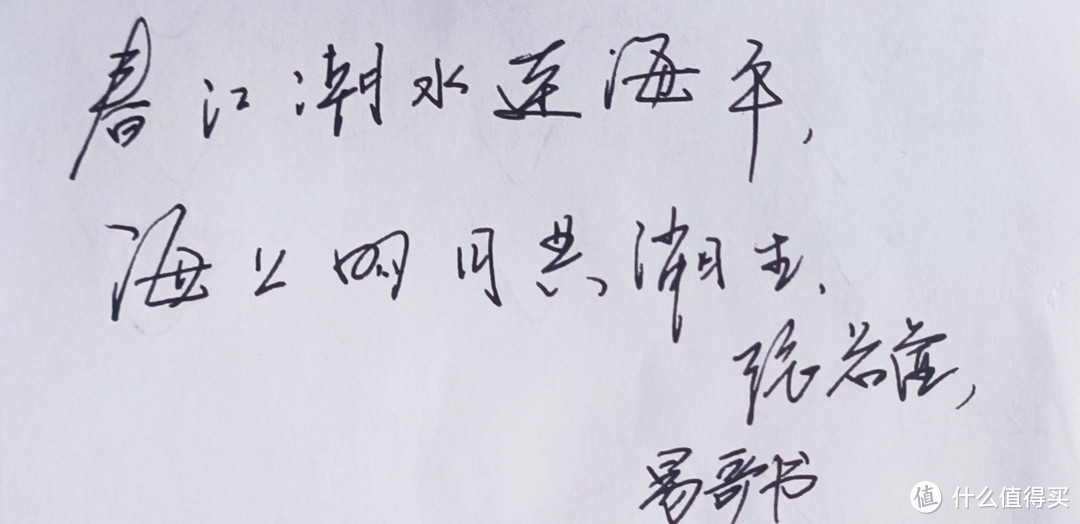 春江潮水连海平，
海上明月共潮生、
张若虚，
易哥书
值 什么值得买